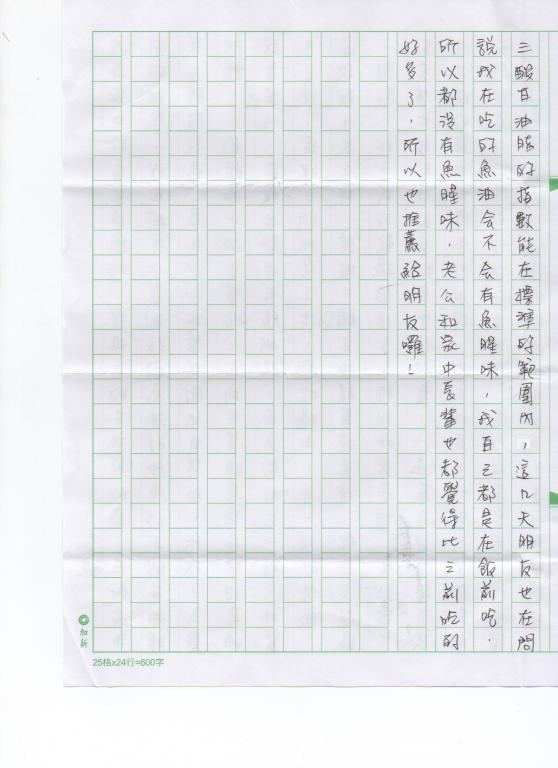 三酸甘油脂的指數能在標準的範圍內，這几天朋友也在問
說我在吃的魚油会不会有魚腥味，我自己都是在飯前吃，
所以都沒有魚腥味，老公和家中長輩也都覺得比之前吃的
好多了，所以也推薦給朋友囉！
加新
25格x24行=600字